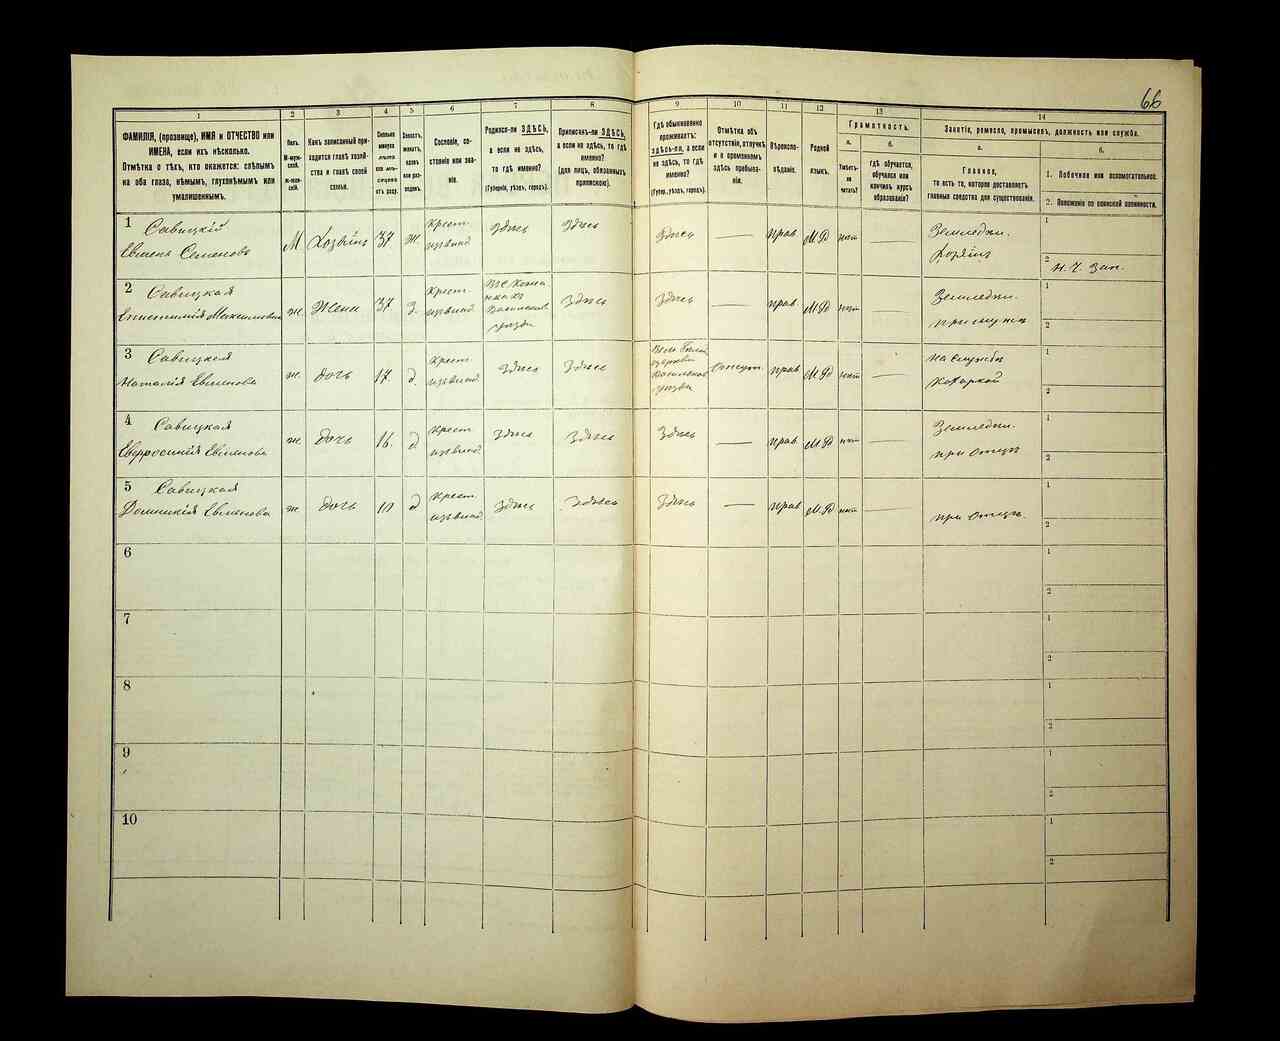 66
1
2
3
4
5
6
7
8
9
10
11
12
13
14
ФАМИЛІЯ, (прозвище), ИМЯ и ОТЧЕСТВО или
ИМЕНА, если ихъ нѣсколько.
Отмѣтка о тѣхъ, кто окажется: слѣпымъ
на оба глаза, нѣмымъ, глухонѣмымъ или
умалишеннымъ.
Полъ.
М-муж-
ской.
ж-жен-
скій.
Какъ записанный при-
ходится главѣ хозяй-
ства и главѣ своей
семьи.
Сколько
минуло
лѣтъ
или мѣ-
сяцевъ
отъ роду.
Холостъ,
женатъ,
вдовъ
или раз-
веденъ.
Сословіе, со-
стояніе или зва-
ніе.
Родился-ли ЗДѢСЬ,
а если не здѣсь,
то гдѣ именно?
(Губернія, уѣздъ, городъ).
Приписанъ-ли ЗДѢСЬ,
а если не здѣсь, то гдѣ
именно?
(для лицъ, обязанныхъ
припискою).
Гдѣ обыкновенно
проживаетъ:
здѣсь-ли, а если
не здѣсь, то гдѣ
именно?
(Губер., уѣздъ, городъ).
Отмѣтка объ
отсутствіи, отлучкѣ
и о временномъ
здѣсь пребыва-
ніи.
Вѣроиспо-
вѣданіе.
Родной
языкъ.
Грамотность.
а.
Умѣетъ-
ли
читать?
б.
гдѣ обучается,
обучался или
кончилъ курсъ
образованія?
Занятіе, ремесло, промыселъ, должность или служба.
а.
Главное,
то есть то, которое доставляетъ
главныя средства для существованія.
б.
1. Побочное или вспомогательное.
2. Положеніе по воинской повинности.
1 Савицкій
Евмень Семеновъ
М Хозяинъ 37 ж. Крест. Здѣсь Здѣсь Здѣсь — прав М.Р нѣт — Земледѣл. Хозяинъ
1
2
2 Савицкая
ж. Жена 37 Крест. Здѣсь Здѣсь — прав М.Р нѣт — Земледѣл. при мужѣ
1
2
3 Савицкая
Наталія Евменова
ж. дочь 17. д. Крест. Здѣсь Здѣсь прав М.Р нѣт — на службѣ
1
2
4 Савицкая
Евфросинія Евменова
ж. дочь 16. д Крест. Здѣсь Здѣсь Здѣсь — прав М.Р нѣт — Земледѣл. при отцѣ
1
2
5 Савицкая
Домникія Евменова
ж. дочь д Крест. Здѣсь Здѣсь Здѣсь — прав М.Р нѣт — при отцѣ
1
2
6
1
2
7
1
2
8
1
2
9
1
2
10
1
2